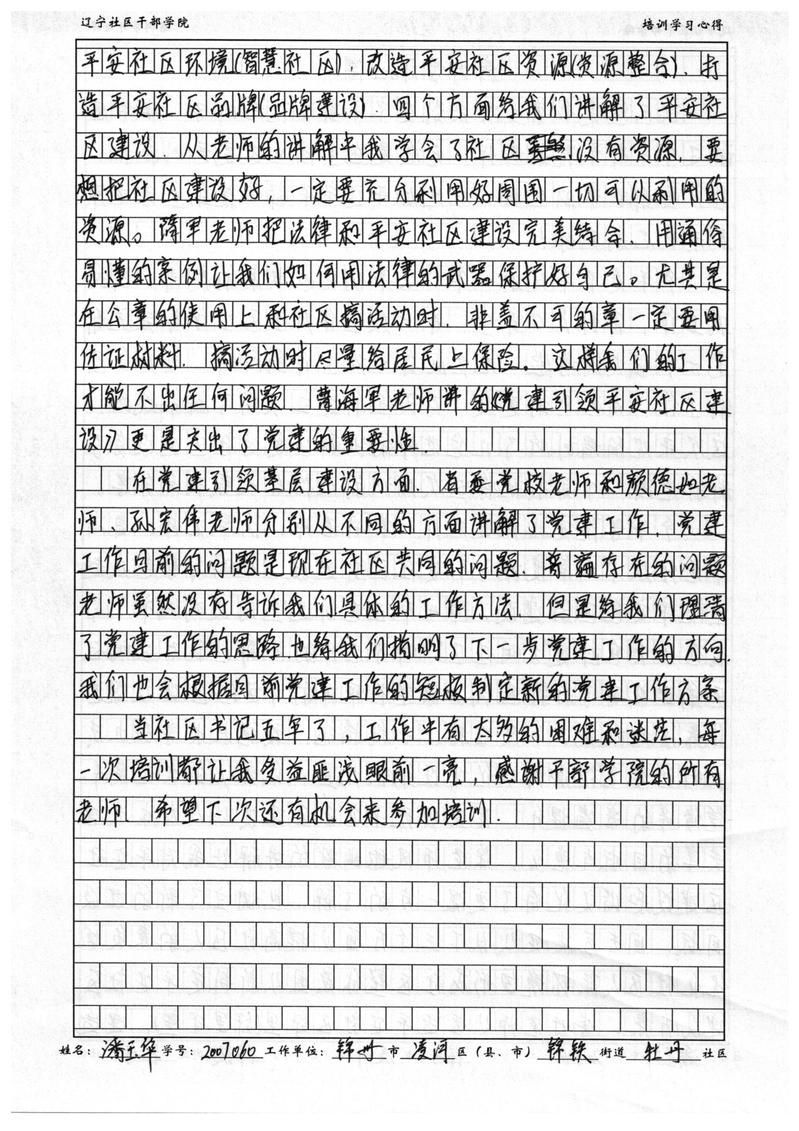 辽宁社区干部学院 培训学习心得
平安社区环境(智慧社区),改造平安社区资源(资源整合),打
造平安社区品牌(品牌建设).四个方面给我们讲解了平安社
区建设.从老师的讲解中我学会了社区没有资源,要
想把社区建设好,一定要充分利用好周围一切可以利用的
资源。隋军老师把法律和平安社区建设完美结合.用通俗
易懂的案例让我们如何用法律的武器保护好自己。尤其是
在公章的使用上和社区搞活动时.非盖不可的章一定要用
佐证材料.搞活动时尽量给居民上保险。这样我们的工作
才能不出任何问题.曹海军老师讲的党建引领平安社区建
设》更是突出了党建的重要性
在党建引领基层建设方面.省委党校老师和颜德如老
师、孙宏伟老师分别从不同的方面讲解了党建工作.党建
工作目前的问题是现在社区共同的问题.普遍存在的问题
老师虽然没有告诉我们具体的工作方法.但是给我们理清
了党建工作的思路也给我们指明了下一步党建工作的方向.
我们也会根据目前党建工作的短板制定新的党建工作方案
当社区书记五年了,工作中有太多的困难和迷茫,每
一次培训都让我受益匪浅眼前一亮,感谢干部学院的所有
老师.希望下次还有机会来参加培训.
姓名:潘玉华学号:2007060工作单位:锦州市凌河区(县、市)锦铁街道牡丹社区